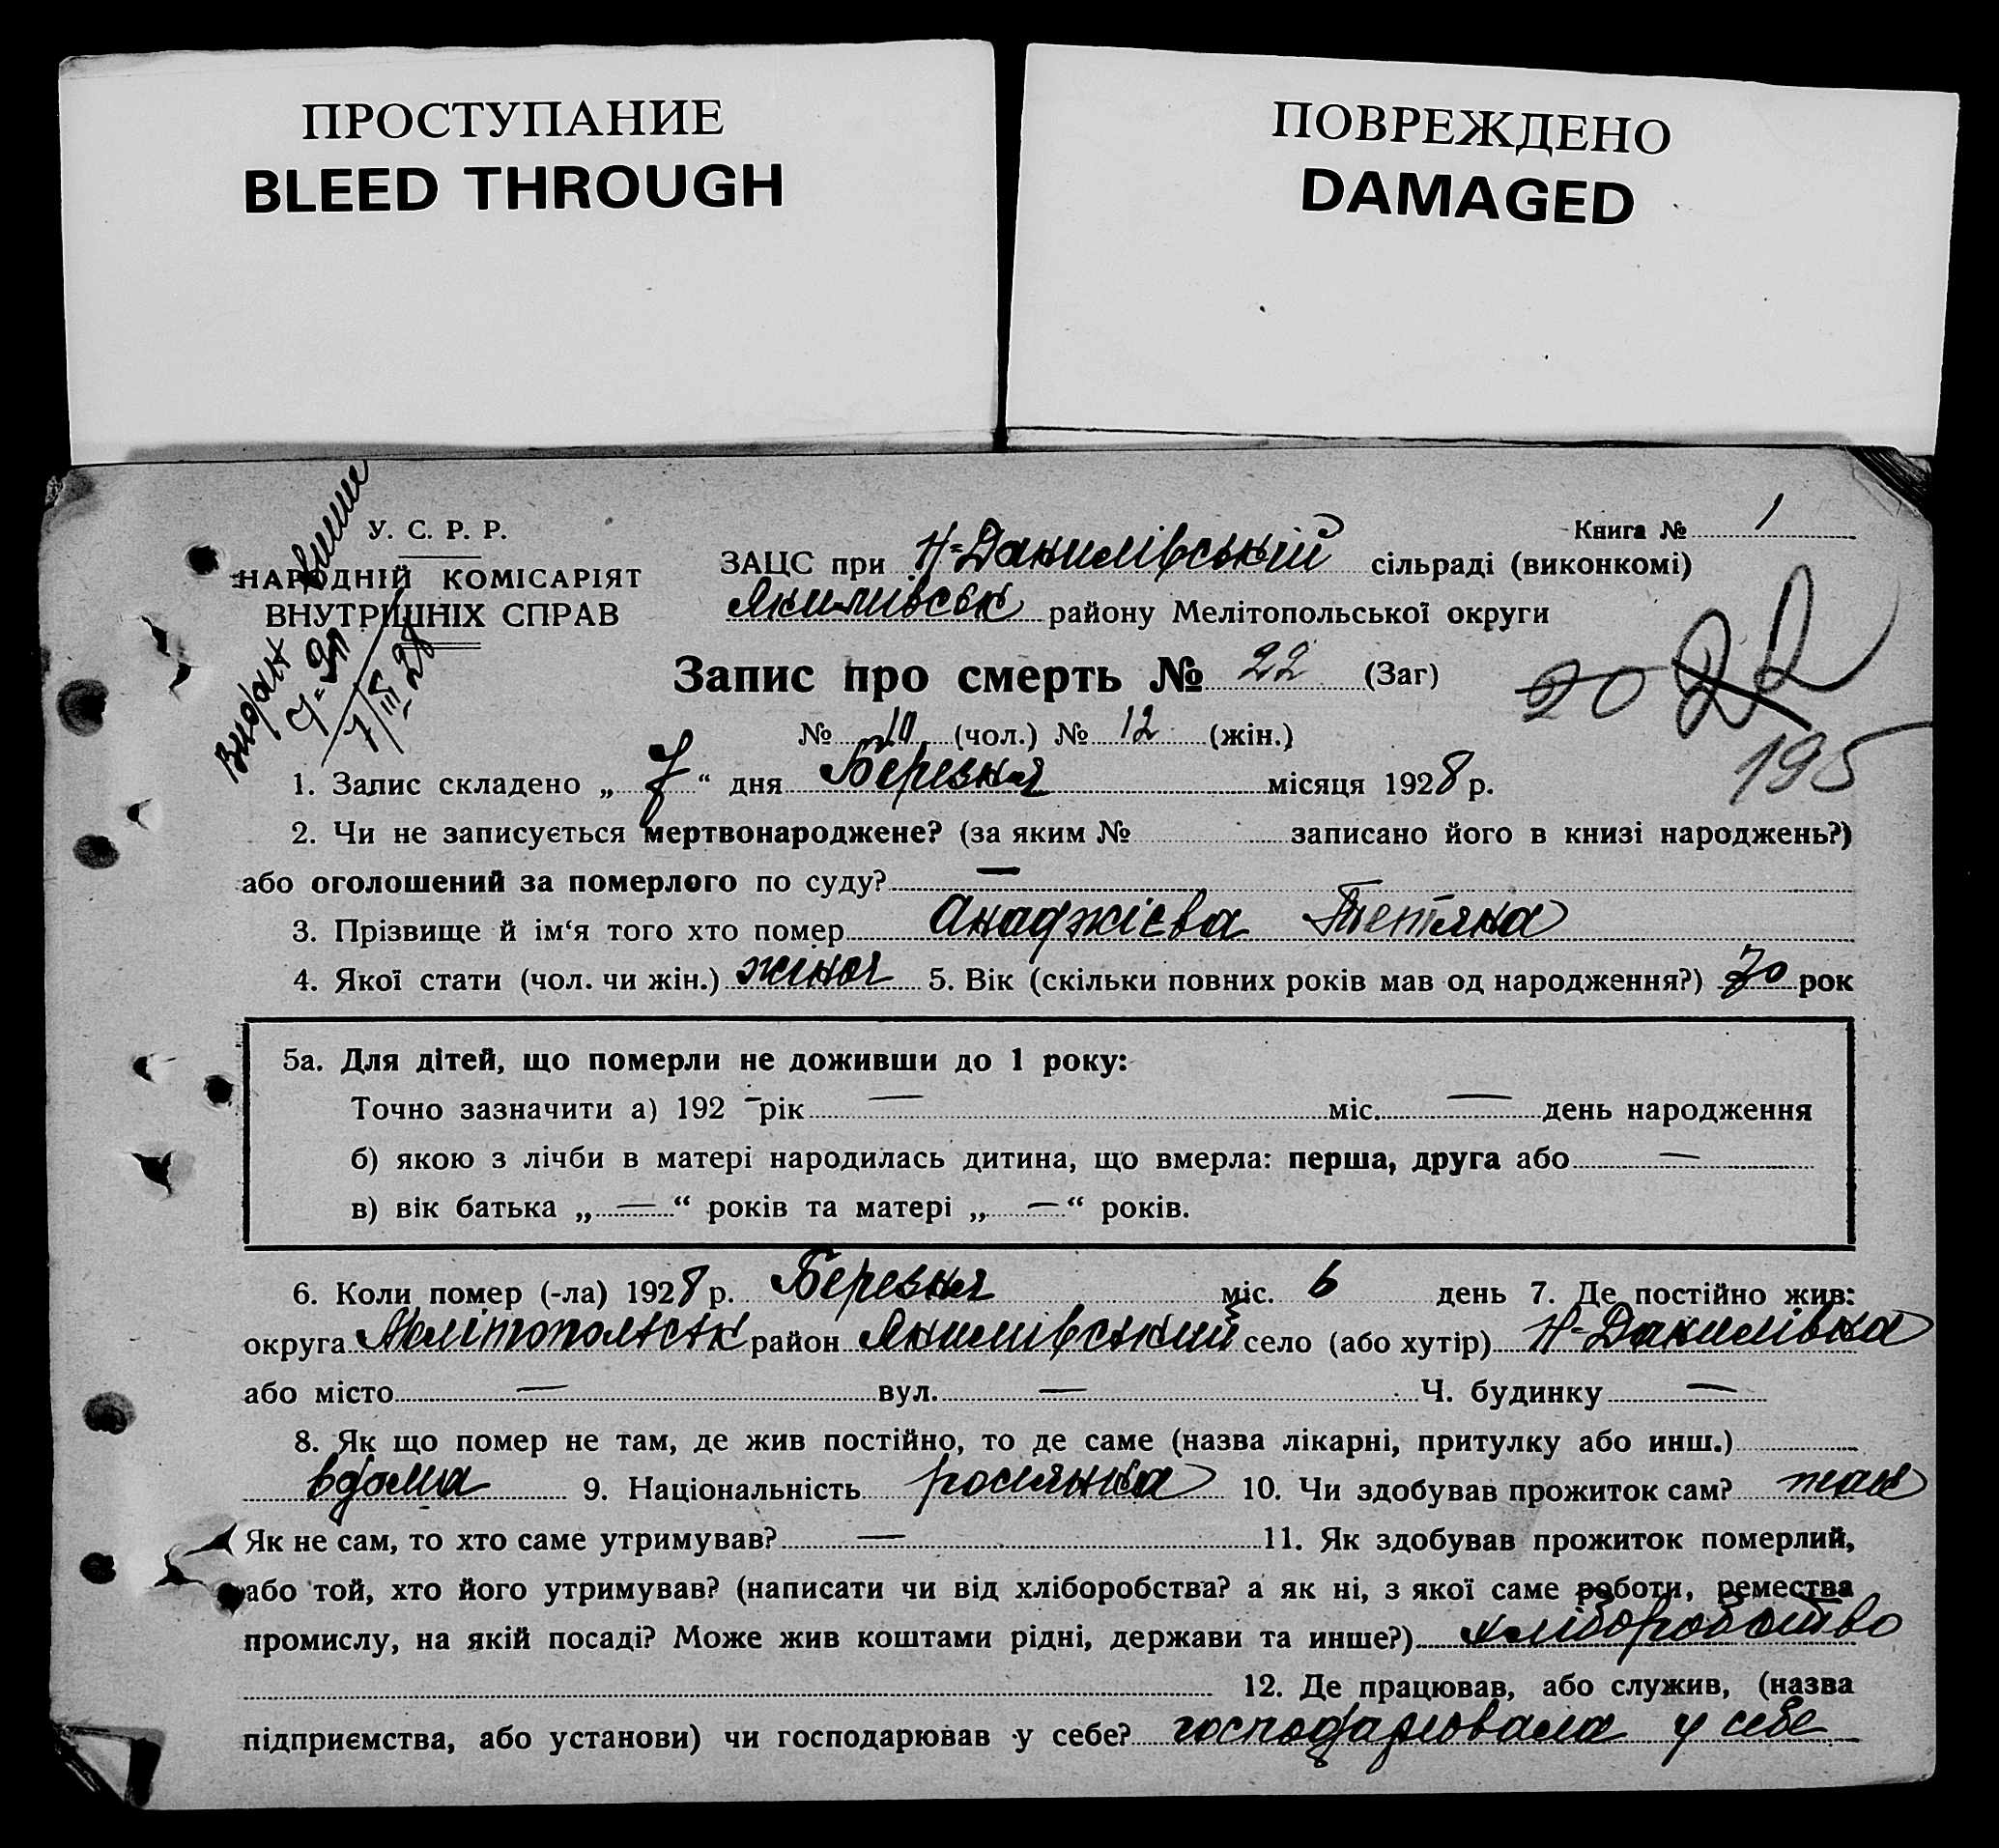 ПРОСТУПАНИЕ
BLEED THROUGH
ПОВРЕЖДЕНО
DAMAGED
У. С. Р. Р.
НАРОДНІЙ КОМІСАРІЯТ
ВНУТРІШНІХ СПРАВ
Книга № 1
ЗАЦС при Н-Данилівській сільраді (виконкомі)
Якимівськ району Мелітопольської округи
Запис про смерть № 22 (Заг)
20 22
195
№ 10 (чол.) № 12 (жін.)
1. Запис складено „ 7 “ дня Березня місяця 1928 р.
2. Чи не записується мертвонароджене? (за яким № записано його в книзі народжень?)
або оголошений за померлого по суду? —
3. Прізвище й ім‘я того хто помер Анаджієва Тетяна
4. Якої стати (чол. чи жін.) жіноч 5. Вік (скільки повних років мав од народження?) 70 рок
5а. Для дітей, що померли не доживши до 1 року:
Точно зазначити а) 192 — рік — міс. — день народження
б) якою з лічби в матері народилась дитина, що вмерла: перша, друга або —
в) вік батька „ — “ років та матері „ — “ років.
6. Коли помер (-ла) 1928 р. Березня міс. 6 день 7. Де постійно жив:
округа Мелітопольськ район Якимівський село (або хутір) Н-Данилівка
або місто — вул. — Ч. будинку —
8. Як що помер не там, де жив постійно, то де саме (назва лікарні, притулку або инш.)
вдома 9. Національність росіянка 10. Чи здобував прожиток сам? так
Як не сам, то хто саме утримував? — 11. Як здобував прожиток померлий,
або той, хто його утримував? (написати чи від хліборобства? а як ні, з якої саме роботи, ремества
промислу, на якій посаді? Може жив коштами рідні, держави та инше?) хліборобство
12. Де працював, або служив, (назва
підприємства, або установи) чи господарював у себе? господарювала у себе